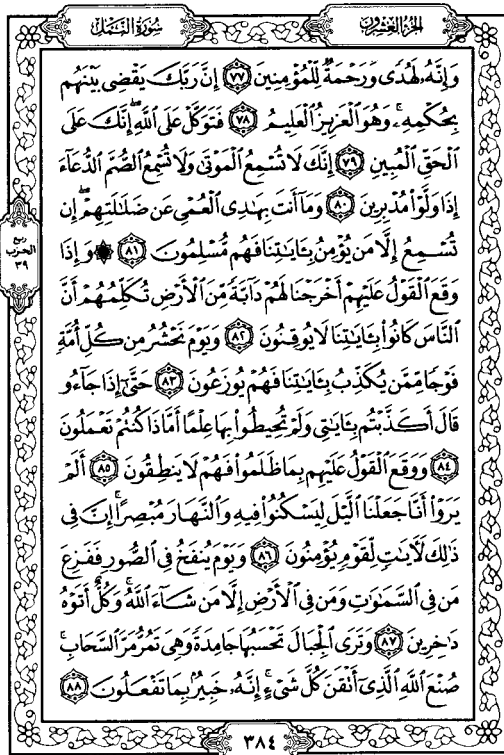 سُورَةُ النَّمْلِ
الجُزْءُ العِشْرُونَ
وَإِنَّهُۥ لَهُدًى وَرَحْمَةٌ لِّلْمُؤْمِنِينَ ٧٧ إِنَّ رَبَّكَ يَقْضِى بَيْنَهُم
بِحُكْمِهِۦ ۚ وَهُوَ ٱلْعَزِيزُ ٱلْعَلِيمُ ٧٨ فَتَوَكَّلْ عَلَى ٱللَّهِ ۖ إِنَّكَ عَلَى
ٱلْحَقِّ ٱلْمُبِينِ ٧٩ إِنَّكَ لَا تُسْمِعُ ٱلْمَوْتَىٰ وَلَا تُسْمِعُ ٱلصُّمَّ ٱلدُّعَآءَ
إِذَا وَلَّوْا۟ مُدْبِرِينَ ٨٠ وَمَآ أَنتَ بِهَـٰدِى ٱلْعُمْىِ عَن ضَلَـٰلَتِهِمْ ۖ إِن
تُسْمِعُ إِلَّا مَن يُؤْمِنُ بِـَٔايَـٰتِنَا فَهُم مُّسْلِمُونَ ٨١ ۞ وَإِذَا
وَقَعَ ٱلْقَوْلُ عَلَيْهِمْ أَخْرَجْنَا لَهُمْ دَآبَّةً مِّنَ ٱلْأَرْضِ تُكَلِّمُهُمْ أَنَّ
ٱلنَّاسَ كَانُوا۟ بِـَٔايَـٰتِنَا لَا يُوقِنُونَ ٨٢ وَيَوْمَ نَحْشُرُ مِن كُلِّ أُمَّةٍ
فَوْجًا مِّمَّن يُكَذِّبُ بِـَٔايَـٰتِنَا فَهُمْ يُوزَعُونَ ٨٣ حَتَّىٰٓ إِذَا جَآءُو
قَالَ أَكَذَّبْتُم بِـَٔايَـٰتِى وَلَمْ تُحِيطُوا۟ بِهَا عِلْمًا أَمَّاذَا كُنتُمْ تَعْمَلُونَ
٨٤ وَوَقَعَ ٱلْقَوْلُ عَلَيْهِم بِمَا ظَلَمُوا۟ فَهُمْ لَا يَنطِقُونَ ٨٥ أَلَمْ
يَرَوْا۟ أَنَّا جَعَلْنَا ٱلَّيْلَ لِيَسْكُنُوا۟ فِيهِ وَٱلنَّهَارَ مُبْصِرًا ۚ إِنَّ فِى
ذَٰلِكَ لَـَٔايَـٰتٍ لِّقَوْمٍ يُؤْمِنُونَ ٨٦ وَيَوْمَ يُنفَخُ فِى ٱلصُّورِ فَفَزِعَ
مَن فِى ٱلسَّمَـٰوَٰتِ وَمَن فِى ٱلْأَرْضِ إِلَّا مَن شَآءَ ٱللَّهُ ۚ وَكُلٌّ أَتَوْهُ
دَٰخِرِينَ ٨٧ وَتَرَى ٱلْجِبَالَ تَحْسَبُهَا جَامِدَةً وَهِىَ تَمُرُّ مَرَّ ٱلسَّحَابِ ۚ
صُنْعَ ٱللَّهِ ٱلَّذِىٓ أَتْقَنَ كُلَّ شَىْءٍ ۚ إِنَّهُۥ خَبِيرٌۢ بِمَا تَفْعَلُونَ ٨٨
ربع
الحزب
٣٩
٣٨٤